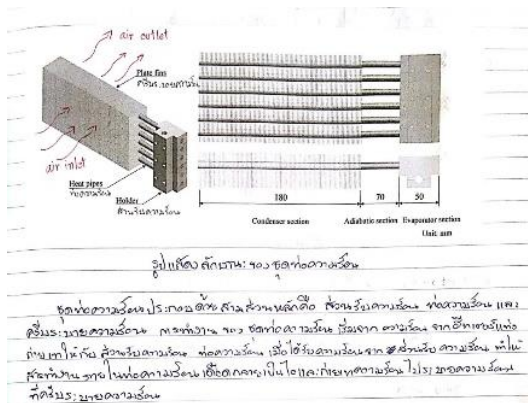 air outlet
Plate fins
ครีบระบายความร้อน
air inlet
Heat pipes
ท่อความร้อน
Holder
ส่วนรับความร้อน
180
70
50
Condenser section
Adiabatic section
Evaporator section
Unit: mm
รูปแสดงลักษณะของชุดท่อความร้อน
ชุดท่อความร้อนประกอบด้วยสามส่วนหลักคือ ส่วนรับความร้อน ท่อความร้อน และ
ครีบระบายความร้อน การทำงานของชุดท่อความร้อนเริ่มจากความร้อนจากฮีทเตอร์แท่ง
ถ่ายเทให้กับส่วนรับความร้อน ท่อความร้อนเมื่อได้รับความร้อนจากส่วนรับความร้อน ทำให้
สารทำงานภายในท่อความร้อนเดือดกลายเป็นไอและถ่ายเทความร้อนไประบายความร้อน
ที่ครีบระบายความร้อน